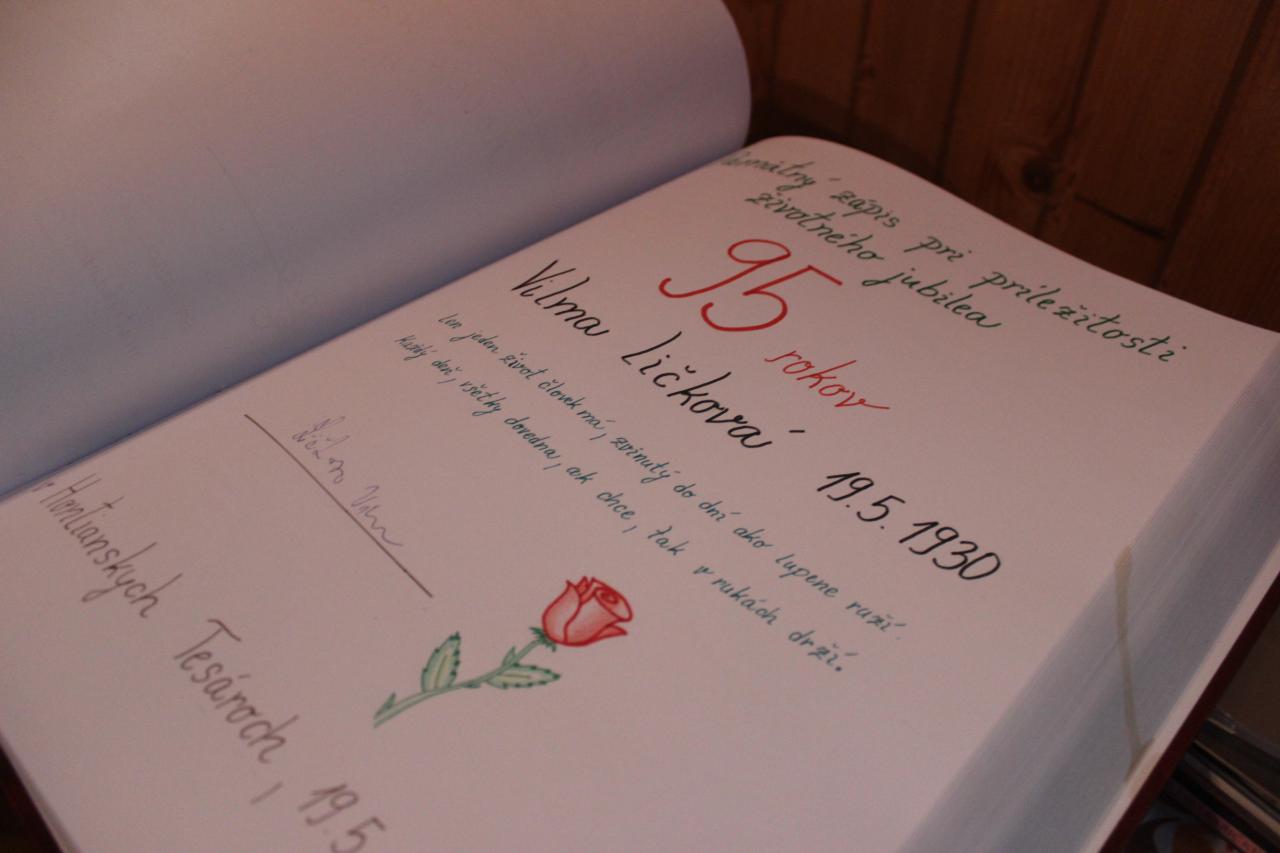 zápis pri príležitosti
životného jubilea
95 rokov
Vilma Ličková 19.5.1930
Len jeden život človek má, zvinutý do dní ako lupene ruží.
Každý deň, všetky dovedna, ak chce, tak v rukách drží.
Hontianskych Tesároch, 19.5